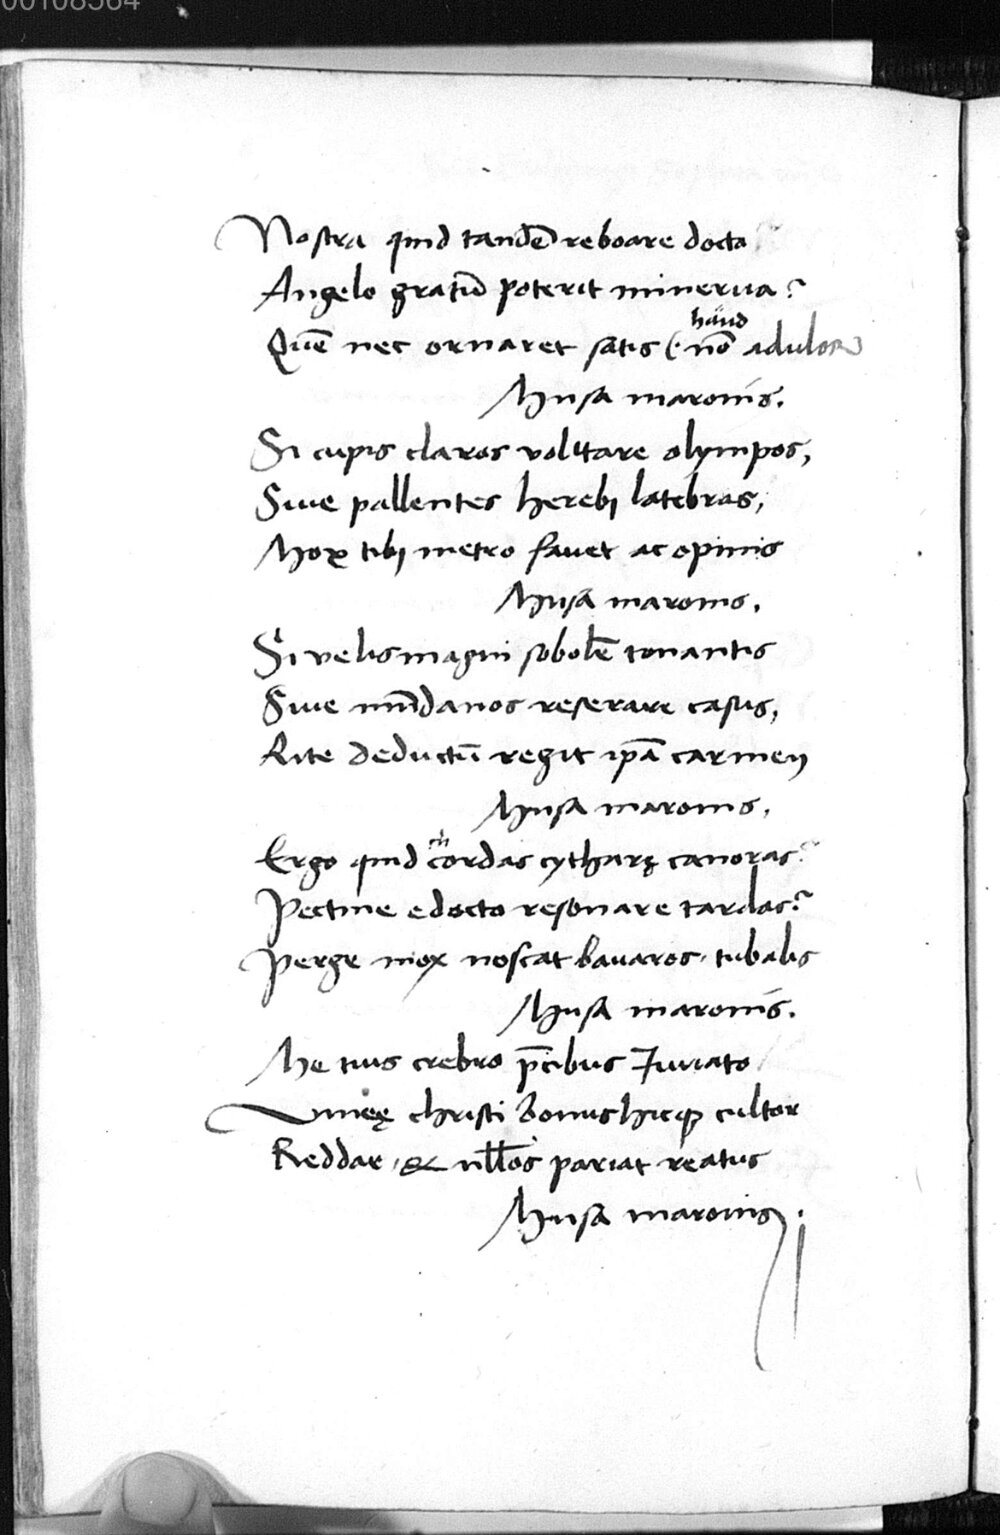 00108564
Nostra quid tandē reboare docta
Angelo gratū poterit minerva?
haud
Quē nec ornaret satis (: nō adulor)
Musa maronis.
Si cupis claros volitare olympos,
Sive pallentes herebi latebras,
Mox tibi metro favet ac opimis
Musa maronis.
Si velis magni sobolē tonantis
Sive mūdanos reserare casus,
Rite deductū regit ip̄a carmen
Musa maronis.
h
Ergo quid cordas cytharę canoras?
Pectine edocto resonare tardas?
Perge mox noscat bavaros, tubalis
Musa maronis.
Me tuis crebro p̄cibus Iuvato
christi bonus hicq; cultor
Reddar, & nll̄os pariat reatus
Musa maronis.